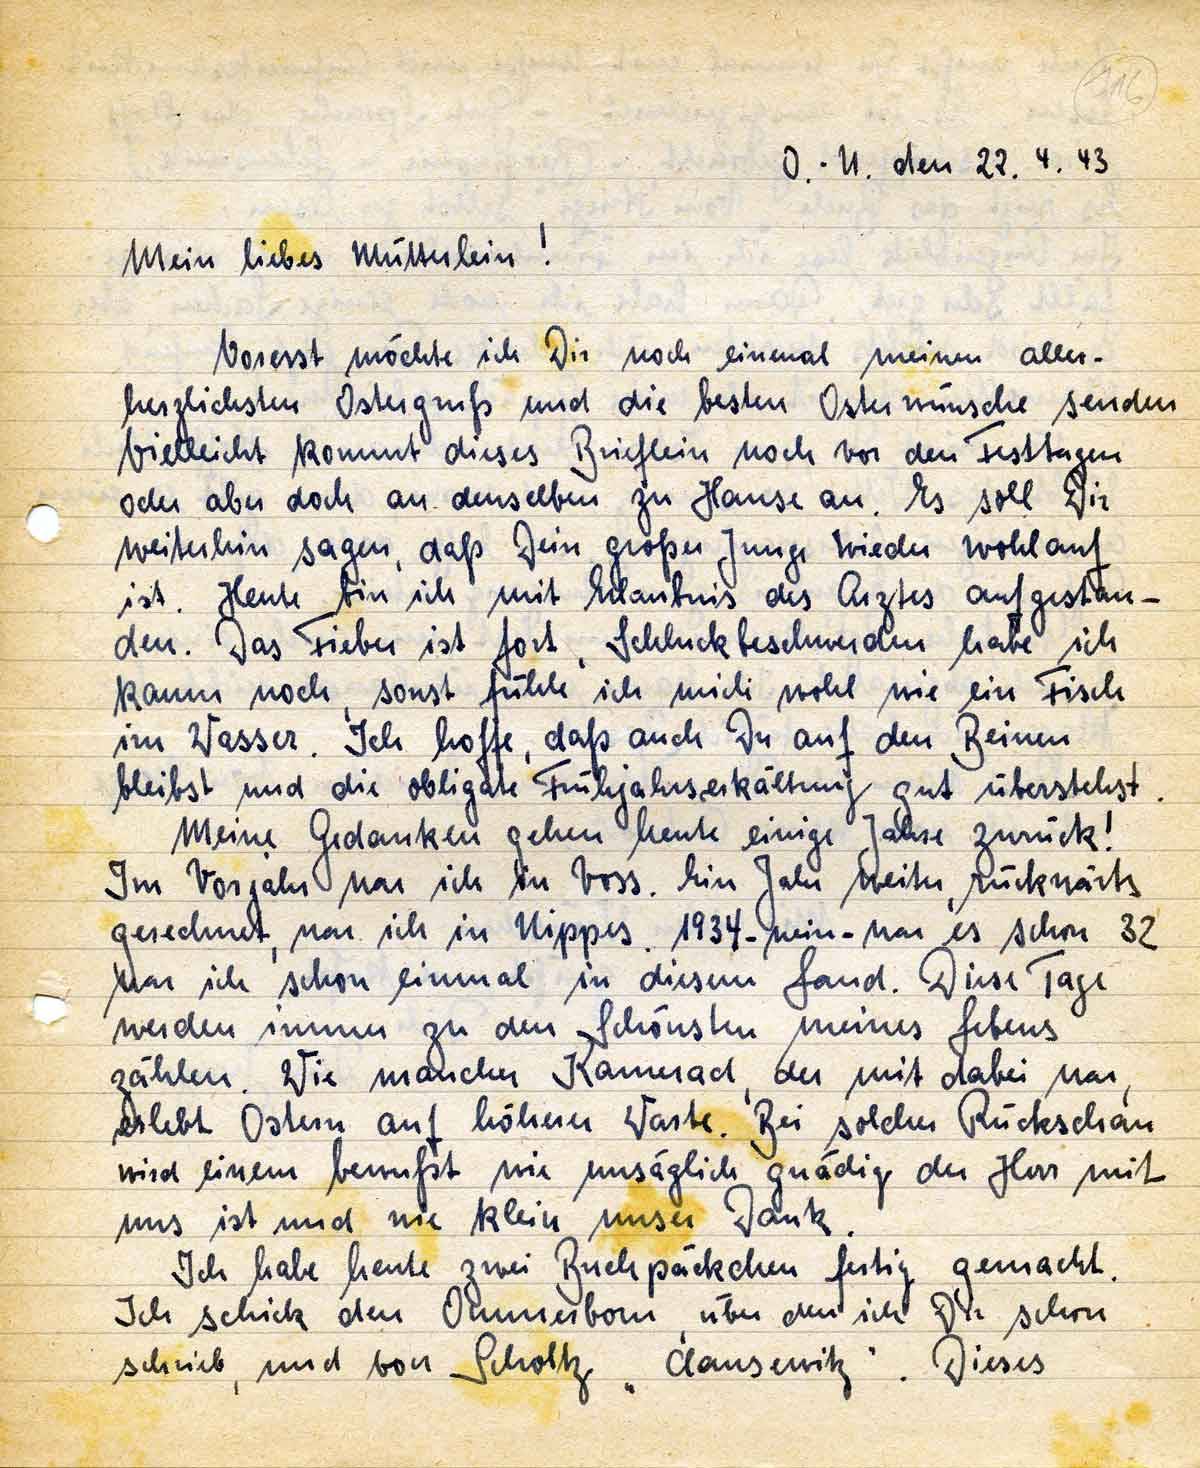 316
O.-U. den 22. 4. 43
Mein liebes Mütterlein!
Vorerst möchte ich Dir noch einmal meinen aller-
herzlichsten Ostergruß und die besten Osterwünsche senden
Vielleicht kommt dieses Brieflein noch vor den Festtagen
oder aber doch an denselben zu Hause an. Es soll Dir
weiterhin sagen, daß Dein großer Junge wieder wohlauf
ist. Heute bin ich mit Erlaubnis des Arztes aufgestan-
den. Das Fieber ist fort, Schluckbeschwerden habe ich
kaum noch, sonst fühle ich mich wohl wie ein Fisch
im Wasser. Ich hoffe, daß auch Du auf den Beinen
bleibst und die obligate Frühjahrserkältung gut überstehst.
Meine Gedanken gehen heute einige Jahre zurück!
Im Vorjahr war ich in Voss. Ein Jahr weiter rückwärts
gerechnet, war ich in Nippes. 1934-nein-war es schon 32
war ich schon einmal in diesem Land. Diese Tage
werden immer zu den Schönsten meines Lebens
zählen. Wie mancher Kamerad, der mit dabei war,
erlebt Ostern auf höherer Warte. Bei solcher Rückschau
wird einem bewußt wie unsäglich gnädig der Herr mit
uns ist und wie klein unser Dank.
Ich habe heute zwei Buchpäckchen fertig gemacht.
Ich schick den Ommerborn, über den ich Dir schon
schrieb, und von Scholtz „Clausewitz". Dieses